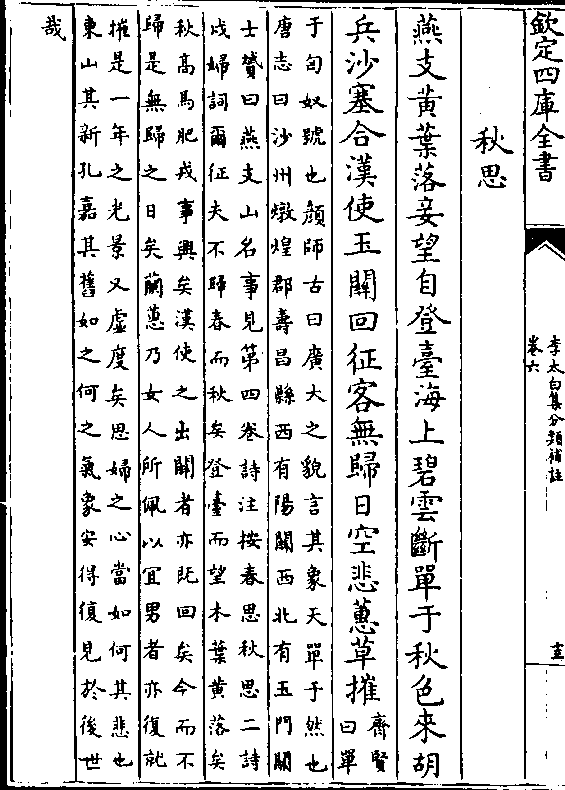 欽定四庫全書
李太白集分類補註
卷六
秋思
燕支黃葉落妾望自登臺海上碧雲斷單于秋色來胡
兵沙塞合漢使玉關回征客無歸日空悲蕙草摧
齊賢
曰單
于匈奴號也顔師古曰廣大之貌言其象天單于然也
唐志曰沙州燉煌郡壽昌縣西有陽關西北有玉門關
士贇曰燕支山名事見第四巻詩注按春思秋思二詩
戍婦詞爾征夫不歸春而秋矣登臺而望木葉黃落矣
秋高馬肥戎事興矣漢使之出關者亦既回矣今而不
歸是無歸之日矣蘭蕙乃女人所佩以宜男者亦復就
摧是一年之光景又虛度矣思婦之心當如何其悲也
東山其新孔嘉其舊如之何之氣象安得復見於後世
哉